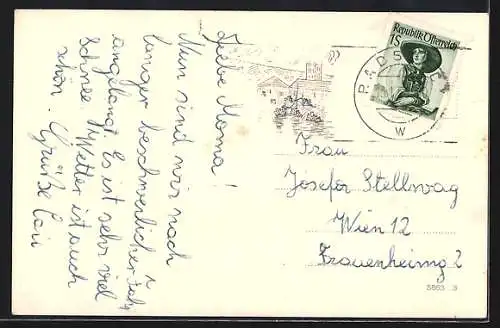 Liebe Moma!
Nun sind wir nach
langer beschwerlicher Fahrt
angelangt. Es ist sehr viel
Schnee. Wetter ist auch
schön. Grüße
Republik Österreich
1S
RADS
W
Frau
Josefa Stellwag
Wien 12
Frauenheimg 2
5863